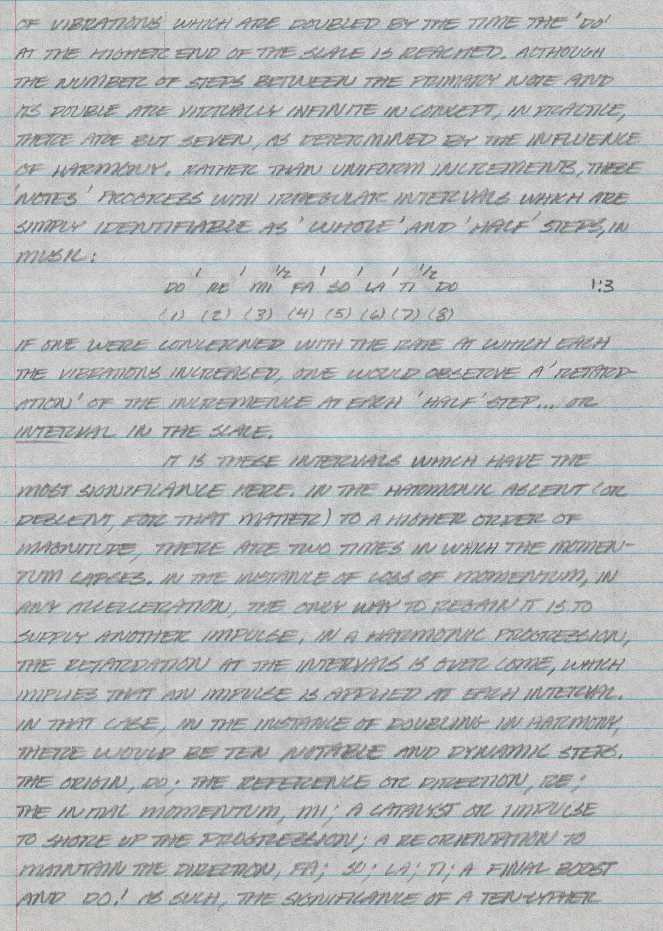 OF VIBRATIONS WHICH ARE DOUBLED BY THE TIME THE 'DO'
AT THE HIGHER END OF THE SCALE IS REACHED. ALTHOUGH
THE NUMBER OF STEPS BETWEEN THE PRIMARY NOTE AND
ITS DOUBLE ARE VIRTUALLY INFINITE IN CONCEPT, IN PRACTICE,
THERE ARE BUT SEVEN, AS DETERMINED BY THE INFLUENCE
OF HARMONY. RATHER THAN UNIFORM INCREMENTS, THESE
'NOTES' PROGRESS WITH IRREGULAR INTERVALS WHICH ARE
SIMPLY IDENTIFIABLE AS 'WHOLE' AND 'HALF' STEPS, IN
MUSIC:
1 1 1/2 1 1 1 1/2
DO RE MI FA SO LA TI DO 1:3
(1) (2) (3) (4) (5) (6) (7) (8)
IF ONE WERE CONCERNED WITH THE RATE AT WHICH EACH
THE VIBRATIONS INCREASED, ONE WOULD OBSERVE A 'RETARD-
ATION' OF THE INCREMENCE AT EACH 'HALF' STEP... OR
INTERVAL IN THE SCALE.
IT IS THESE INTERVALS WHICH HAVE THE
MOST SIGNIFICANCE HERE. IN THE HARMONIC ASCENT (OR
DESCENT, FOR THAT MATTER) TO A HIGHER ORDER OF
MAGNITUDE, THERE ARE TWO TIMES IN WHICH THE MOMEN-
TUM LAPSES. IN THE INSTANCE OF LOSS OF MOMENTUM, IN
ANY ACCELLERATION, THE ONLY WAY TO REGAIN IT IS TO
SUPPLY ANOTHER IMPULSE. IN A HARMONIC PROGRESSION,
THE RETARDATION AT THE INTERVALS IS OVER COME, WHICH
IMPLIES THAT AN IMPULSE IS APPLIED AT EACH INTERVAL.
IN THAT CASE, IN THE INSTANCE OF DOUBLING IN HARMONY,
THERE WOULD BE TEN NOTABLE AND DYNAMIC STEPS.
THE ORIGIN, DO; THE REFERENCE OR DIRECTION, RE;
THE INITIAL MOMENTUM, MI; A CATALYST OR IMPULSE
TO SHORE UP THE PROGRESSION; A REORIENTATION TO
MAINTAIN THE DIRECTION, FA; SO; LA; TI; A FINAL BOOST
AND DO! AS SUCH, THE SIGNIFICANCE OF A TEN-CYPHER